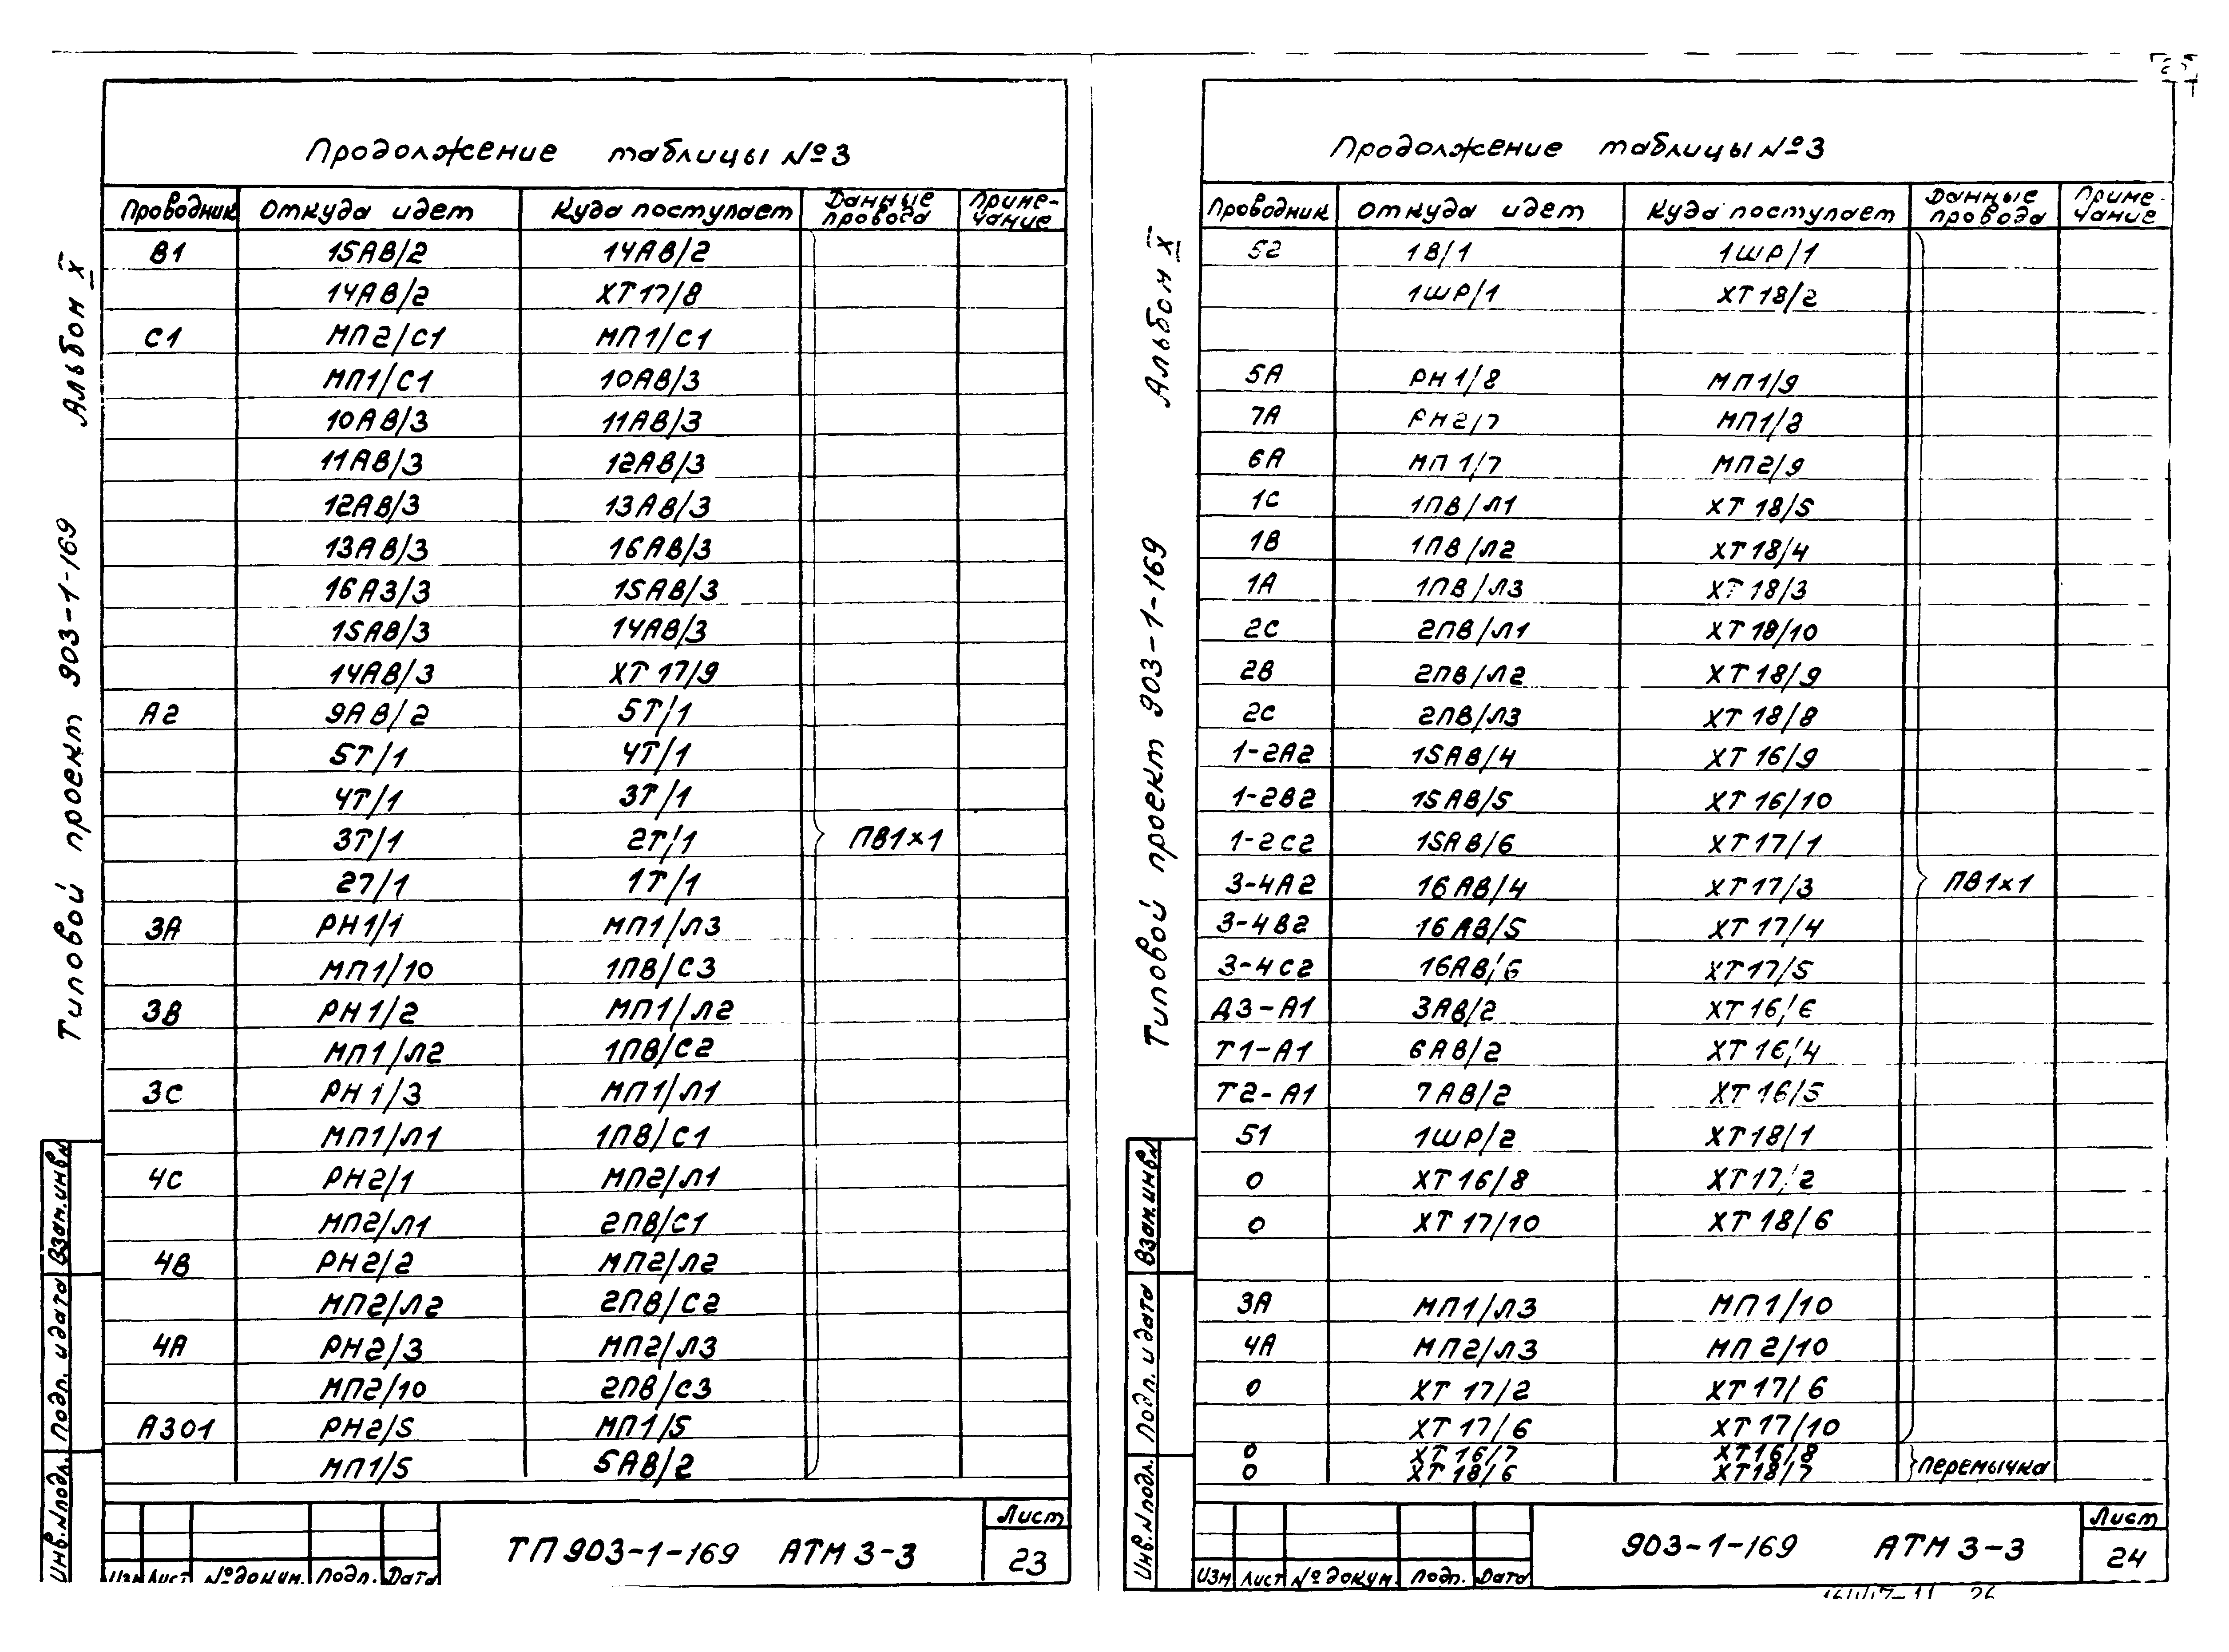 Продолжение таблицы №3
Проводник Откуда идет Куда поступает Данные провода Приме-чание
В1 15АВ/2 14АВ/2
14АВ/2 ХТ17/8
С1 МП2/С1 МП1/С1
МП1/С1 10АВ/3
10АВ/3 11АВ/3
11АВ/3 12АВ/3
12АВ/3 13АВ/3
13АВ/3 16АВ/3
16АЗ/3 15АВ/3
15АВ/3 14АВ/3
14АВ/3 ХТ17/9
А2 9АВ/2 5Т/1
5Т/1 4Т/1
4Т/1 3Т/1
3Т/1 2Т/1 ПВ1×1
27/1 1Т/1
3А РН1/1 МП1/Л3
МП1/10 1ПВ/С3
3В РН1/2 МП1/Л2
МП1/Л2 1ПВ/С2
3С РН1/3 МП1/Л1
МП1/Л1 1ПВ/С1
4С РН2/1 МП2/Л1
МП2/Л1 2ПВ/С1
4В РН2/2 МП2/Л2
МП2/Л2 2ПВ/С2
4А РН2/3 МП2/Л3
МП2/10 2ПВ/С3
А301 РН2/5 МП1/5
МП1/5 5АВ/2
Изм Лист №докум. Подп. Дата
ТП 903-1-169 АТМ3-3
Лист
23
Типовой проект 903-1-169 Альбом X
Инв.№подл. Подп. и дата Взам.инв№
Продолжение таблицы №3
Проводник Откуда идет Куда поступает Данные провода Приме-чание
52 1В/1 1ШР/1
1ШР/1 ХТ18/2
5А РН1/8 МП1/9
7А РН2/7 МП1/8
6А МП1/7 МП2/9
1С 1ПВ/Л1 ХТ18/5
1В 1ПВ/Л2 ХТ18/4
1А 1ПВ/Л3 ХТ18/3
2С 2ПВ/Л1 ХТ18/10
2В 2ПВ/Л2 ХТ18/9
2С 2ПВ/Л3 ХТ18/8
1-2А2 15АВ/4 ХТ16/9
1-2В2 15АВ/5 ХТ16/10
1-2С2 15АВ/6 ХТ17/1
3-4А2 16АВ/4 ХТ17/3 ПВ1×1
3-4В2 16АВ/5 ХТ17/4
3-4С2 16АВ/6 ХТ17/5
Д3-А1 3АВ/2 ХТ16/6
Т1-А1 6АВ/2 ХТ16/4
Т2-А1 7АВ/2 ХТ16/5
51 1ШР/2 ХТ18/1
0 ХТ16/8 ХТ17/2
0 ХТ17/10 ХТ18/6
3А МП1/Л3 МП1/10
4А МП2/Л3 МП2/10
0 ХТ17/2 ХТ17/6
ХТ17/6 ХТ17/10
0 ХТ16/7 ХТ16/8
0 ХТ18/6 ХТ18/7 перемычка
Изм Лист №докум. Подп. Дата
903-1-169 АТМ3-3
Лист
24
Типовой проект 903-1-169 Альбом X
Инв.№подл. Подп. и дата Взам.инв№
26